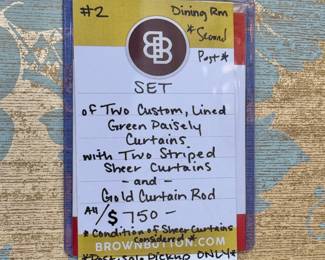 #2
Dining Rm
*Second
Post*
BB
SET
of Two Custom, Lined
Green Paisely
Curtains
with Two Striped
Sheer Curtains
- and -
Gold Curtain Rod
All/$750-
* Condition of Sheer Curtains
considered *
BROWNBUTTON.COM
*Post-Sale Pickup ONLY*